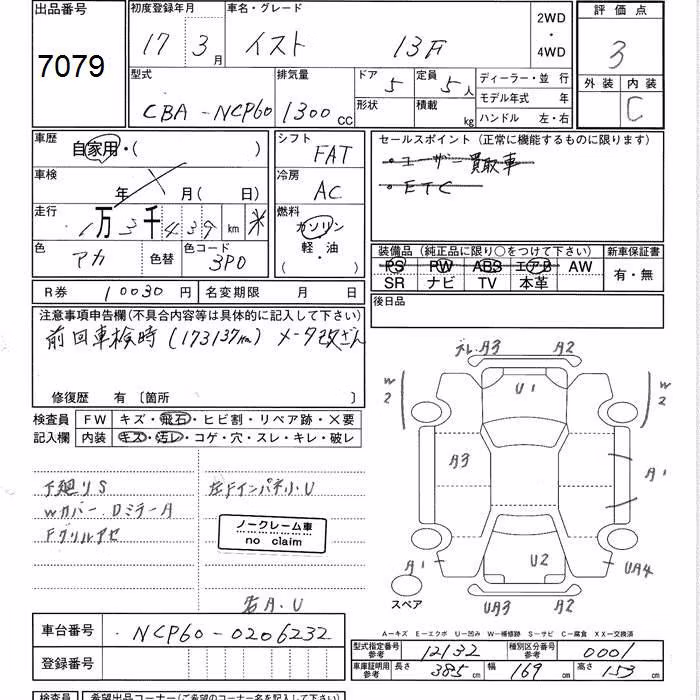 出品番号 初度登録年月 車名・グレード 2WD ・ 4WD 評価点
7079 17 3月 イスト 13F 3
型式 排気量 ドア 5 定員 5人 ディーラー・並行 外装 内装
CBA-NCP60 1300CC 形状 積載 kg モデル年式 年 C
ハンドル 左・右
車歴 自家用・( ) シフト FAT セールスポイント (正常に機能するものに限ります)
・ユーザー買取車
車検 年 月( 日) 冷房 AC ・ETC
走行 1万3千439km 燃料 ガソリン 軽・油 ( )
装備品 (純正品に限り○をつけて下さい) 新車保証書
色 アカ 色替 色コード 3P0 PS PW ABS エアB AW 有・無
SR ナビ TV 本革
R券 10030円 名変期限 月 日 後日品
注意事項申告欄(不具合内容等は具体的に記入して下さい)
前回車検時(173137km) メータ改ざん
修復歴 有〔箇所 〕
検査員 FW キズ・飛石・ヒビ割・リペア跡・×要
記入欄 内装 キズ・汚レ・コゲ・穴・スレ・キレ・破レ
下廻りS 左Fインパネ小U
Wカバー・DミラーA
Fグリルアセ
ノークレーム車
no claim
右A.U
A3 A2
W2 U1 W2
A3 A1
A1 U2 UA4
スペア UA3 A2
A－キズ E－エクボ U－凹み W－補修跡 S－サビ C－腐食 XX－交換済
車台番号 NCP60-0206232
型式指定番号 参考 12132 種別区分番号 参考 0001
登録番号 車庫証明用 参考 長さ 385cm 幅 169cm 高さ 153cm
検査員 希望出品コーナー(ご希望のコーナー名を記入下さい)